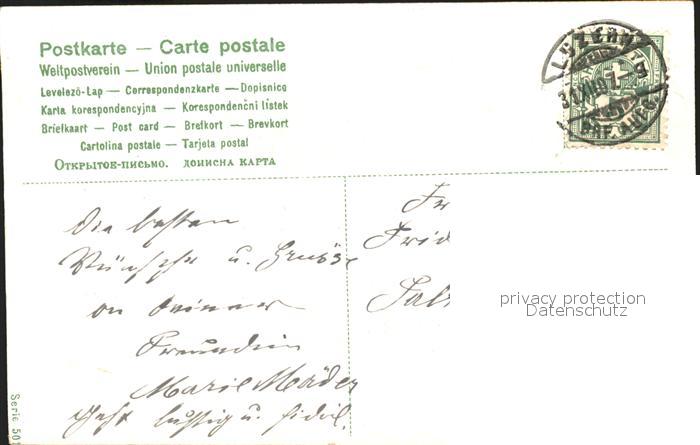 Postkarte — Carte postale
Weltpostverein — Union postale universelle
Levelező-Lap — Correspondenzkarte — Dopisnice
Karta korespondencyjna — Korespondenční lístek
Briefkaart — Post card — Brefkort — Brevkort
Cartolina postale — Tarjeta postal
ОТКРЫТОЕ-ПИСЬМО. ДОПИСНА КАРТА
LUZERN
31.XII.07
BRF. AUFG.
Die besten
Wünsche u. Grüsse
von Deiner
Freundin
Marie Mäder
lustig u. fidel.
Fr
Frid
privacy protection
Datenschutz
Serie 501